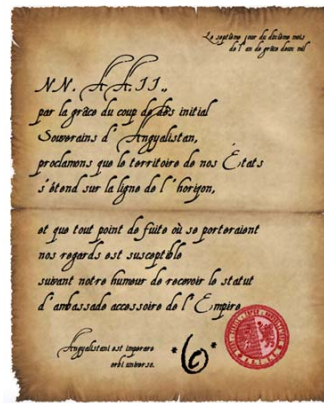 Le septième jour du dixième mois
de l'an de grâce deux mil
NN. AA. II.,
par la grâce du coup de dés initial
Souverains d'Angyalistan,
proclamons que le territoire de nos États
s'étend sur la ligne de l'horizon,
et que tout point de fuite où se porteraient
nos regards est susceptible
suivant notre humeur de recevoir le statut
d'ambassade accessoire de l'Empire
Angyalistani est imperare
orbi universo.